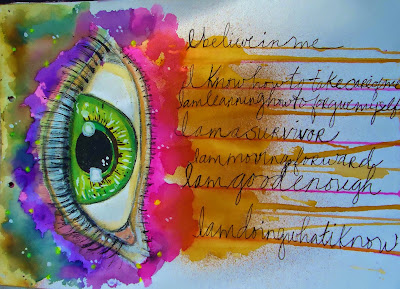 I believe in me
I know how to take care of me
I am learning how to forgive myself
I am a SURVIVOR
I am moving forward
I am good enough
I am doing what I know